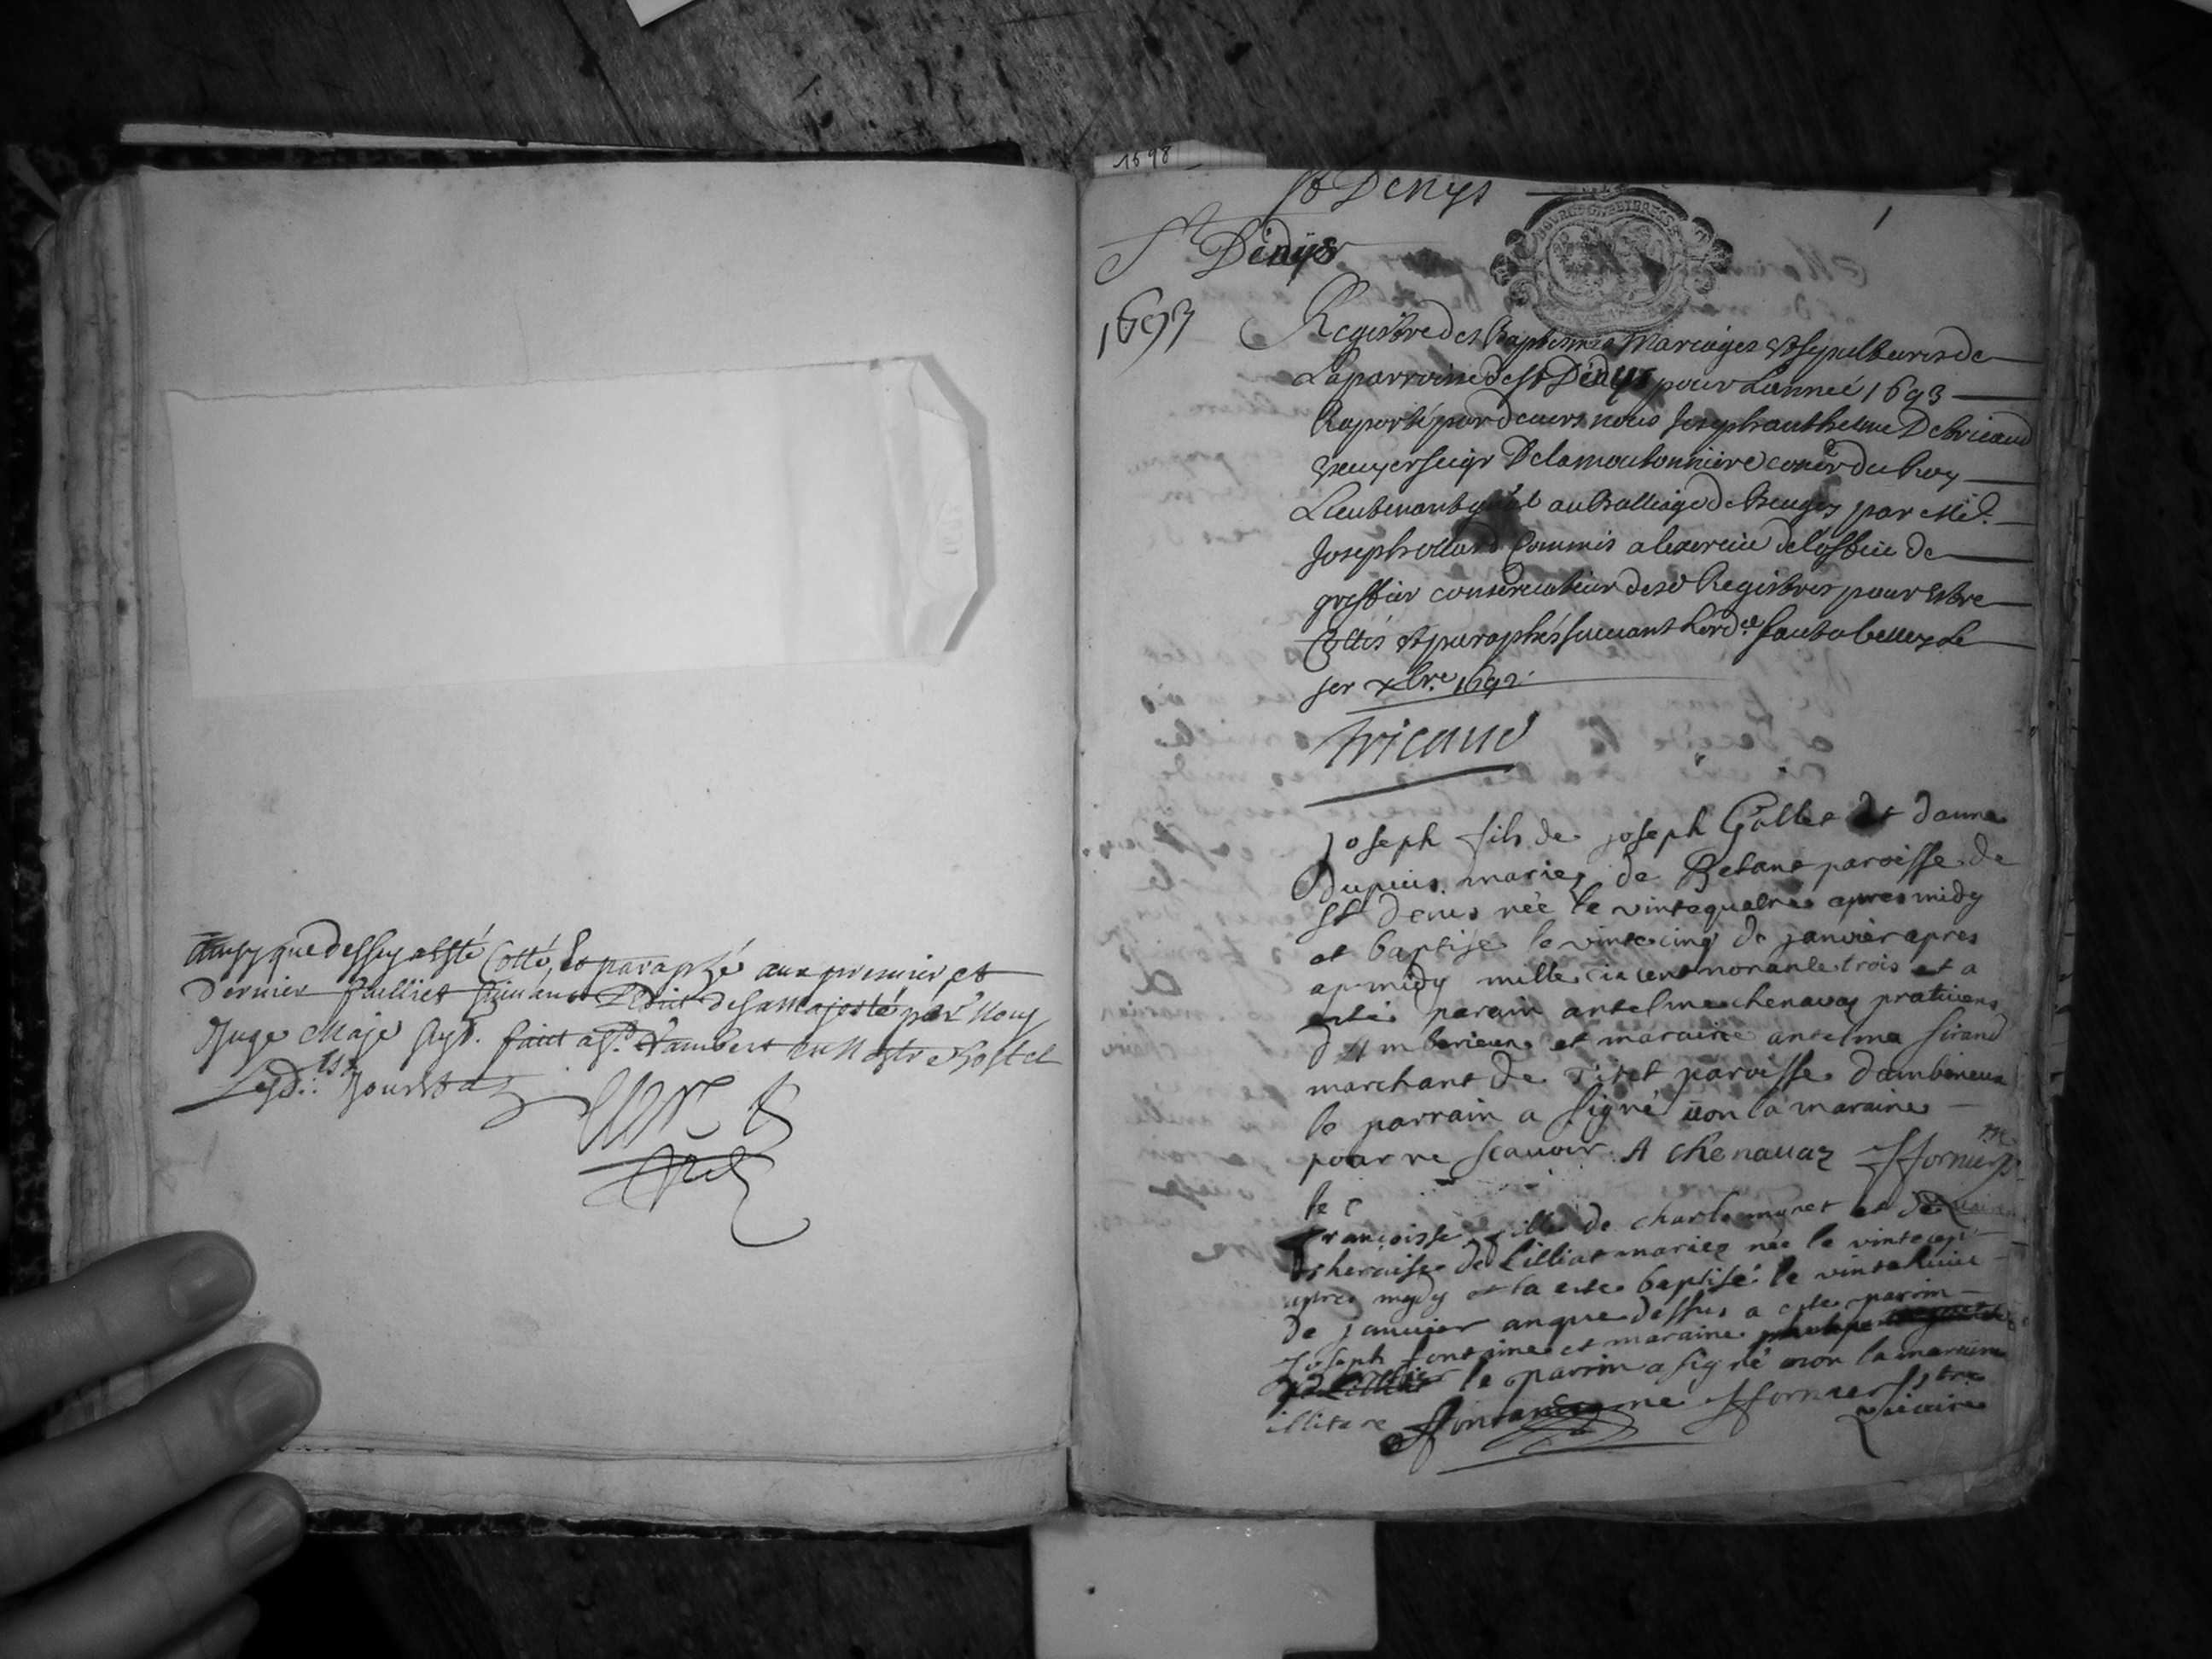 Ainsy que dessus a esté Cotté, et paraphé aux premier et
dernier fueillet suivant l'Edict de sa majesté par Nous
Juge Maje susd. fait a St Rambert en Nostre hostel
Lesd. jour et an
1698
St Denys
1
St Denys
1693
Registre des Baptesmes Mariages et sepultures de
La parroisse de St Denys pour L'année 1693
Raporté par devers nous Joseph anthelme De tricaud
escuyer seigr De la moutonniere coner du Roy
Lieutenant gnal au Balliage de Beugey par Me
Joseph Commis a lexercice de loffice de
greffier conservateur desd Registres pour estre
Cottés et paraphés suivant Lordce fait a belley Le
ier xbre 1692.
Tricaud
Joseph fils de joseph Gallet et danne
dupuis maries de Betant paroisse de
st denis née le vintequatre apres midy
et baptisé le vintecinq de janvier apres
ap midy mille six cent nonante trois et a
esté parain antelme chenavaz praticiens
d'Amberieux et maraine antelma sirand
marchant de Tiret paroisse damberieux
le parrain a signé non la maraine
pour ne scauoir. A Chenauaz ffornier
le
françoise fille de charle muret et de
de Lilliat maries née le vintesept
apres mydy et la esté baptisé le vintehuit
De janvier an que dessus a esté parin
Joseph fontaine et maraine
le parrin a signé non la maraine
illitere ffontaine ffornier ptre
vicaire